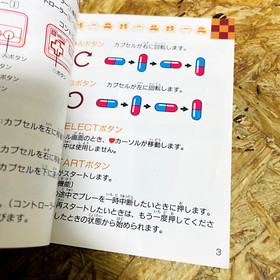 ボタン
カプセルが右に回転します。
ボタン
カプセルが左に回転します。
SELECTボタン
ル画面のとき、♥カーソルが移動します。
中は使用しません。
STARTボタン
スタートします。
機能）
途中でプレーを一時中断したいときに押します。
再スタートしたいときは、もう一度押してくださ
したときの状態から始められます。
3
ボタン
ボタン
カプセルを左に
カプセルを右に
カプセルを下に
（コントローラー
びます。